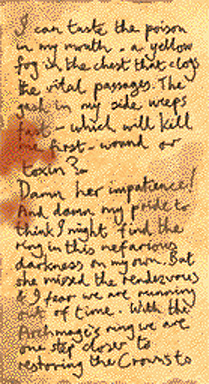 I can taste the poison
in my mouth - a yellow
fog in the chest that clogs
the vital passages. The
gash in my side weeps
fast - which will kill
me first - wound or
toxin?
Damn her impatience!
And damn my pride to
think I might find the
ring in this nefarious
darkness on my own. But
she missed the rendezvous
& I fear we are running
out of time. With the
Archmage's ring we are
one step closer to
restoring the Crowns to